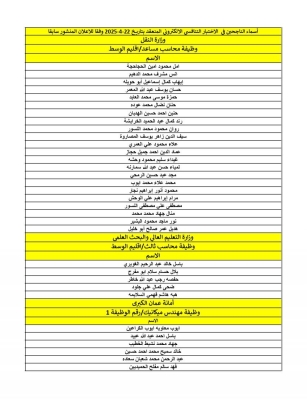 أسماء الناجحين في الاختبار التنافسي الإلكتروني المنعقد بتاريخ 22-4-2025 وفقا للإعلان المنشور سابقا
وزارة النقل
وظيفة محاسب مساعد/اقليم الوسط
الاسم
امل محمود امين الحجاحجة
انس مشرف محمد الدهيم
إيهاب كمال إسماعيل أبو حويله
حسان يوسف عبد الله العمر
حمزة موسى محمد العابد
حنان نضال محمد عوده
حنين احمد حسين الهديان
رند كمال عبد الحميد الخرابشة
روان محمود محمد النسور
سيف الدين زاهر يوسف المصاروة
علاء محمود علي العمري
عماد الدين احمد جميل حجاز
غيداء سليم محمود وحشه
لمياء حسن عبد الله سمارنه
مجد عيد حسين الرمحي
محمد علاء محمد ايوب
محمود انور إبراهيم نجار
مرام إبراهيم علي الوحش
مصطفى علي مصطفى النسور
منال جهاد محمد محمد
نور ماجد محمود البشير
هديل عمر صالح أبو خليل
وزارة التعليم العالي والبحث العلمي
وظيفة محاسب ثالث/اقليم الوسط
الاسم
باسل خالد عبد الرحيم الغويري
بلال حسام سلام ابو مفرح
حفصه رجب عبد الله خاطر
ضحى كمال علي جلود
هبه هاشم فهمي السلايمه
أمانة عمان الكبرى
وظيفة مهندس ميكانيك/رقم الوظيفة 1
الاسم
ايوب معاويه ايوب الكراعين
باسل احمد عبد الله عبيد
جهاد محمد نشيط الخطيب
خالد سميح محمد احمد حسين
عبد الرحمن محمد شعبان سعاده
فهد سالم مفلح الحميديين